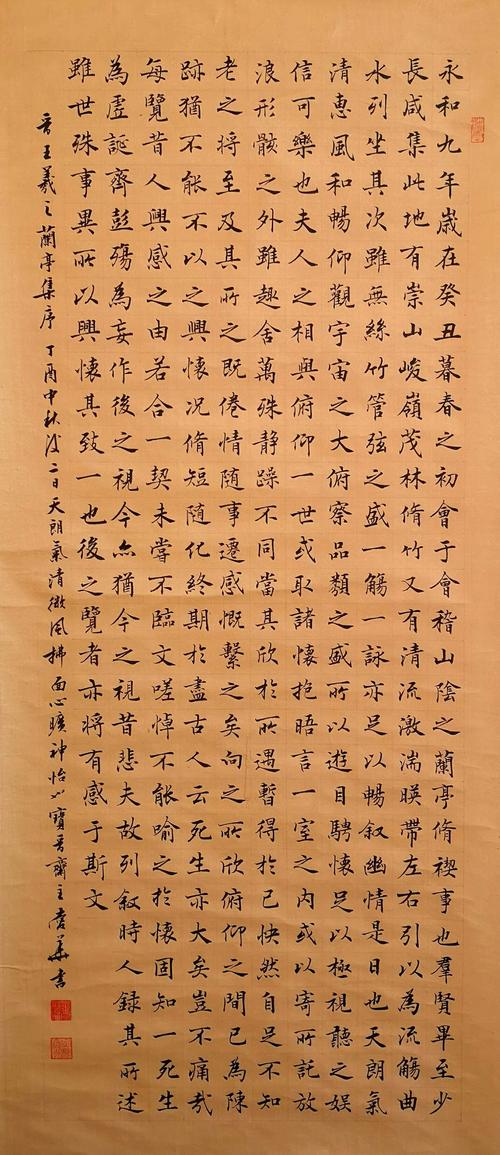 永和九年歲在癸丑暮春之初會于會稽山陰之蘭亭脩禊事也羣賢畢至少
長咸集此地有崇山峻嶺茂林脩竹又有清流激湍暎帶左右引以為流觴曲
水列坐其次雖無絲竹管弦之盛一觴一詠亦足以暢叙幽情是日也天朗氣
清惠風和暢仰觀宇宙之大俯察品類之盛所以遊目騁懷足以極視聽之娛
信可樂也夫人之相與俯仰一世或取諸懷抱晤言一室之內或以寄所託放
浪形骸之外雖趣舍萬殊静躁不同當其欣於所遇暫得於己快然自足不知
老之將至及其所之既倦情隨事遷感慨繫之矣向之所欣俯仰之間已為陳
跡猶不能不以之興懷況脩短隨化終期於盡古人云死生亦大矣豈不痛哉
每覽昔人興感之由若合一契未嘗不臨文嗟悼不能喻之於懷固知一死生
為虛誕齊彭殤為妄作後之視今亦猶今之視昔悲夫故列叙時人錄其所述
雖世殊事異所以興懷其致一也後之覽者亦將有感于斯文
晉王羲之蘭亭集序 丁酉中秋後二日天朗氣清微風拂面心曠神怡 寶晉齋主 華書